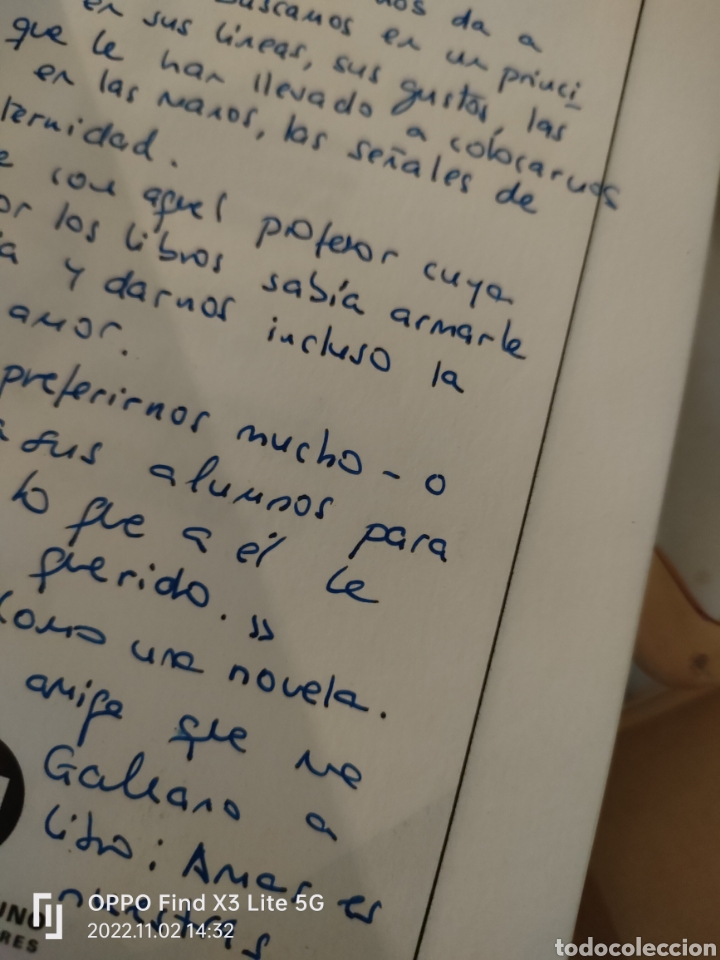 nos da a
buscamos en un princi
en sus líneas, sus gustos, las
que le han llevado a colocarnos
en las manos, las señales de
ternidad.
con aquel profesor cuya
or los libros sabía armarle
ia y darnos incluso la
amor.
preferirnos mucho - o
a sus alumnos para
lo que a él le
querido."
Como una novela.
amiga que me
Galeano a
libro: Amar es
nuestras
UNO
RES
OPPO Find X3 Lite 5G
2022.11.02 14:32
todocoleccion